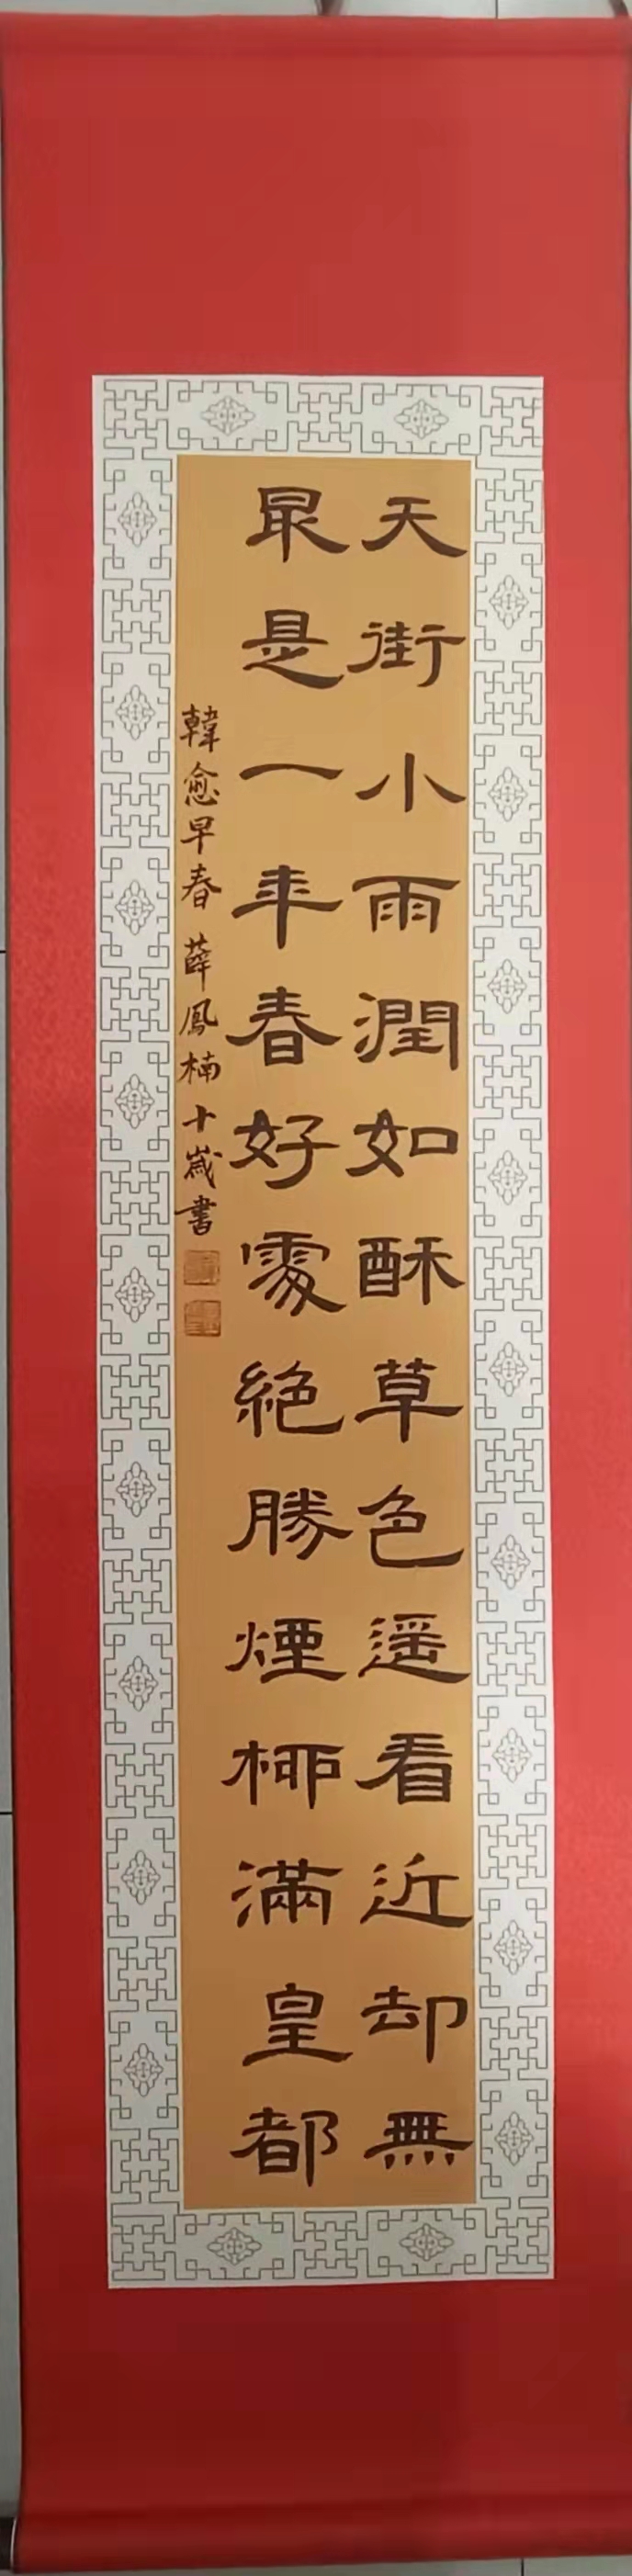 天街小雨潤如酥草色遥看近却無
最是一年春好處絶勝煙柳滿皇都
韓愈早春 薛鳳楠十歲書